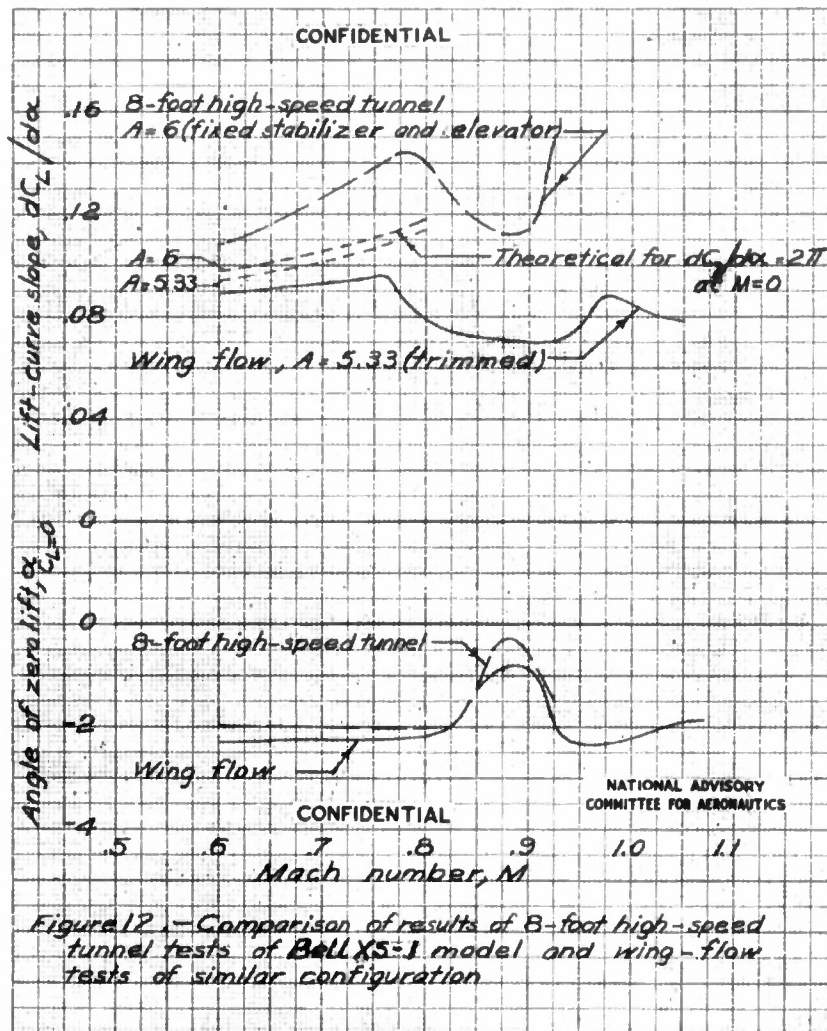 CONFIDENTIAL
Lift-curve slope, dCL/dα
.16
.12
.08
.04
0
8-foot high-speed tunnel
A = 6 (fixed stabilizer and elevator)
A = 6
A = 5.33
Theoretical for dCL/dα = 2π
at M=0
Wing flow, A = 5.33 (trimmed)
Angle of zero lift, α CL=0
0
-2
-4
8-foot high-speed tunnel
Wing flow
NATIONAL ADVISORY
COMMITTEE FOR AERONAUTICS
CONFIDENTIAL
.5 .6 .7 .8 .9 1.0 1.1
Mach number, M
Figure 12.-Comparison of results of 8-foot high-speed
tunnel tests of Bell XS-1 model and wing-flow
tests of similar configuration